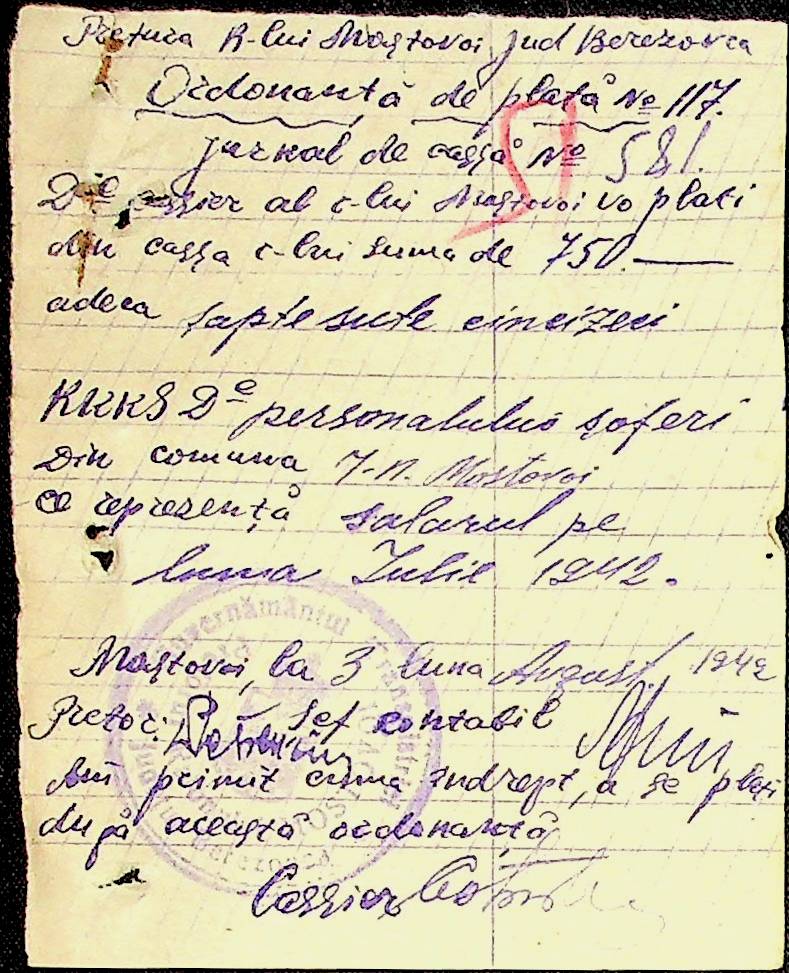 Pretura R-lui Moștovoi jud Berezovca
Ordonantă de plată № 117.
jurnal de cassă № 581.
51
D-l cassier al r-lui Moștovoi va plati
din cassa r-lui suma de 750.—
adeca șapte sute cincizeci
RKKS D-e personalului șoferi
Din comuna J.N. Mostovoi
ce reprezentă salarul pe
luna Iulie 1942.
Moștovoi, la 3 luna Avgust 1942
Pretor: Șef contabil
Am primit cuma indrept, a se plati
după această ordonanță
Cassier
Guvernământul Transnistriei
Berezovca